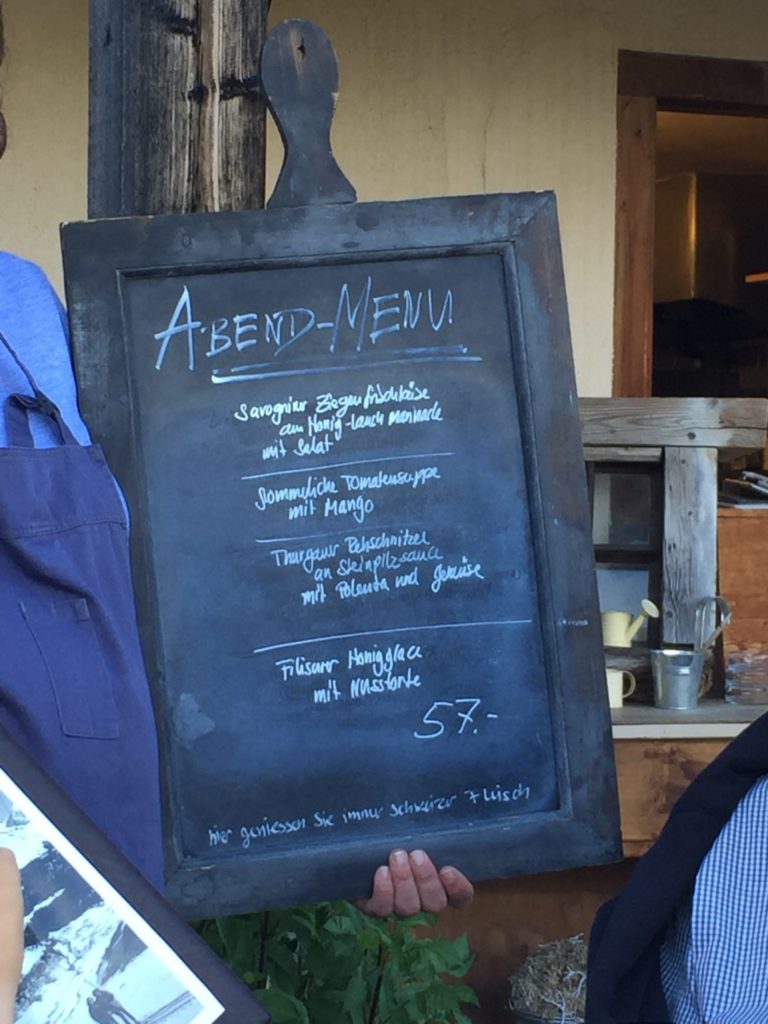 ABEND-MENU
Savogniner Ziegenfrischkäse
an Honig-Lauch Marinade
mit Salat
Sommerliche Tomatensuppe
mit Mango
Thurgauer Rehschnitzel
an Steinpilzsauce
mit Polenta und Gemüse
Filisurer Honigglace
mit Nusstorte
57.-
hier geniessen Sie immer Schweizer Fleisch